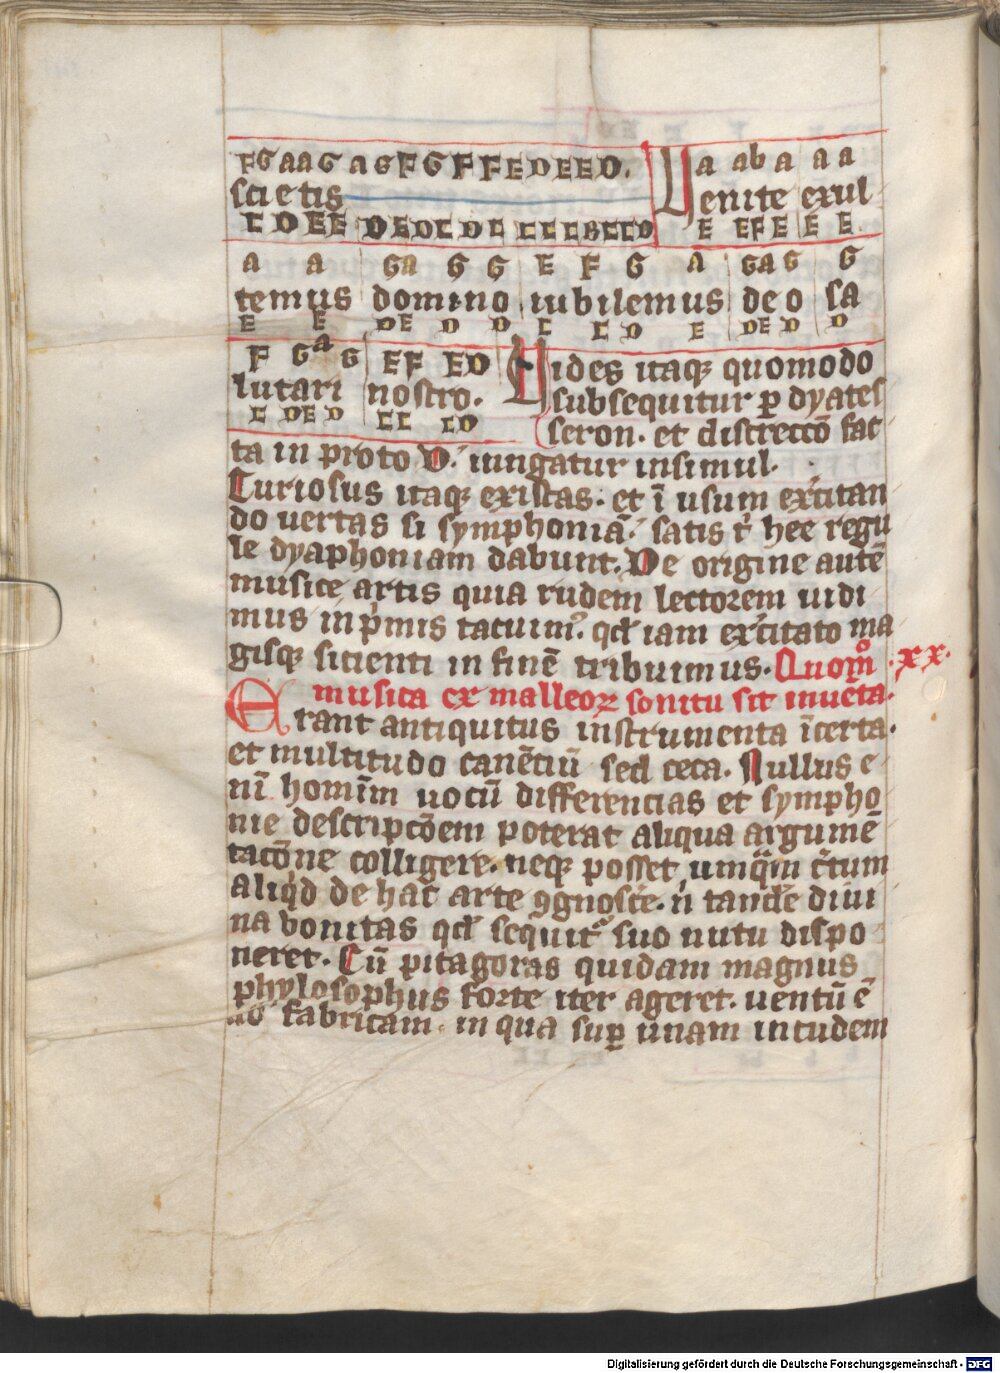 FGaaG aGFGFFEDEED. Va ab a a a
scietis enite exul
CDEE DEDC DC CCCBCCCD E EF E E E
a a Ga G G E F G a GaG G
temus domino iubilemus deo sa
E E DE D D C C D E DE D D
F Ga G EF ED Uides itaq; quomodo
lutari nostro. subsequitur p dyates
C DE D CC CD seron. et discrecco fac
ta in proto D. iungatur insimul.
Curiosus itaq; existas. et ī usum exc̉itan
do uertas si symphoniā. satis t̉ hee regu
le dyaphoniam dabunt. De origine autē
musice artis quia rudem lectorem uidi
mus in p̉mis tacuim᾽. qd̉ iam exc̉itato ma
gisq; sicienti in finē tribuimus. Quomo xx.
musica ex malleoꝝ sonitu sit inuēta.
Erant antiquitus instrumenta īcerta.
et multitudo canētiū sed ceca. Nullus e
nī homīm uocū differencias et sympho
nie descripcōem poterat aliqua argumē
tacōne colligere. neq; posset umq̄m c̄tum
aliq̉d de hac arte ꝯgnosce. n̄ tandē diui
na bonitas qd̉ sequit᾽ suo nutu dispo
neret. Cū pitagoras quidam magnus
phylosophus forte iter ageret. uentū ē
ad fabricam. in qua sup̄ unam incudem
Digitalisierung gefördert durch die Deutsche Forschungsgemeinschaft - DFG